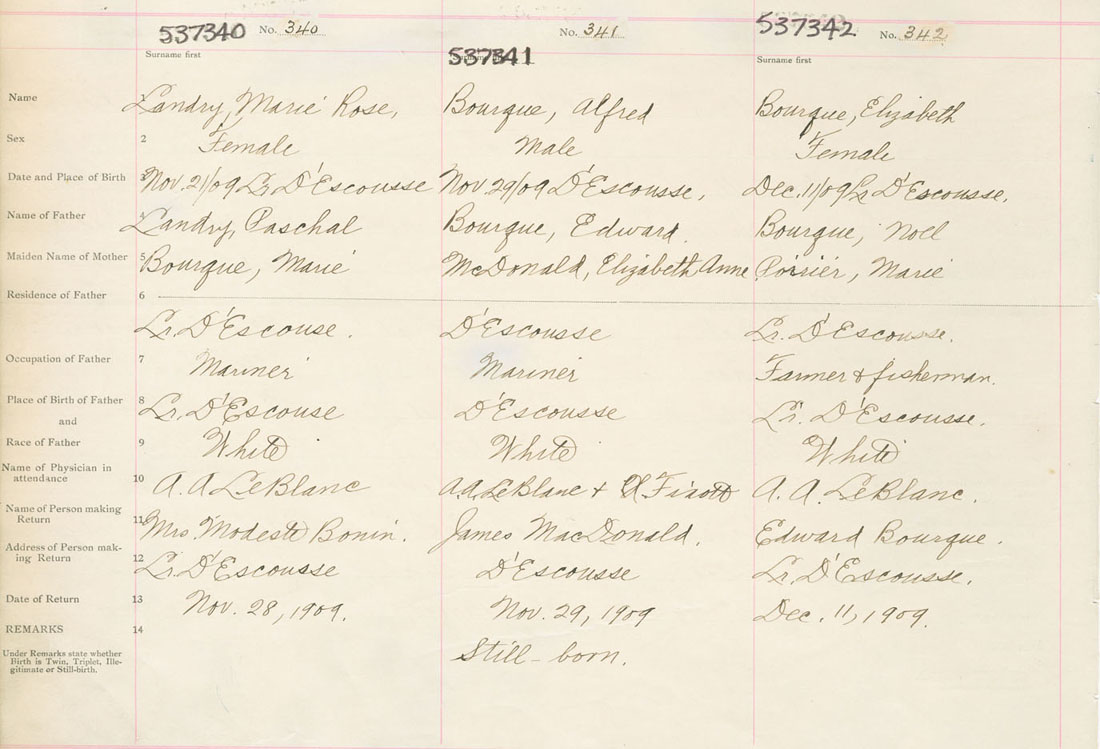 537340 No. 340 537341 No. 341 537342 No. 342
Surname first Surname first
Name 1 Landry, Marie Rose, Bourque, Alfred Bourque, Elizabeth
Sex 2 Female Male Female
Date and Place of Birth 3 Nov. 21/09 Lr. D'Escousse Nov 29/09 D'Escousse, Dec. 11/09 Lr D'Escousse.
Name of Father 4 Landry, Paschal Bourque, Edward. Bourque, Noel
Maiden Name of Mother 5 Bourque, Marie McDonald, Elizabeth Anne Poirier, Marie
Residence of Father 6
Lr. D'Escouse. D'Escousse Lr. D'Escousse.
Occupation of Father 7 Mariner Mariner Farmer & fisherman.
Place of Birth of Father 8 Lr. D'Escouse D'Escousse Lr. D'Escousse.
and
Race of Father 9 White White White
Name of Physician in
attendance 10 A. A LeBlanc A.A. LeBlanc + Fixott A. A. LeBlanc.
Name of Person making
Return 11 Mrs Modeste Bonin. James MacDonald. Edward Bourque.
Address of Person mak-
ing Return 12 Lr. D'Escousse D'Escousse Lr. D'Escousse.
Date of Return 13 Nov. 28, 1909. Nov. 29, 1909 Dec. 11, 1909.
REMARKS 14
Under Remarks state whether
Birth is Twin, Triplet, Ille-
gitimate or Still-birth.
Still-born.